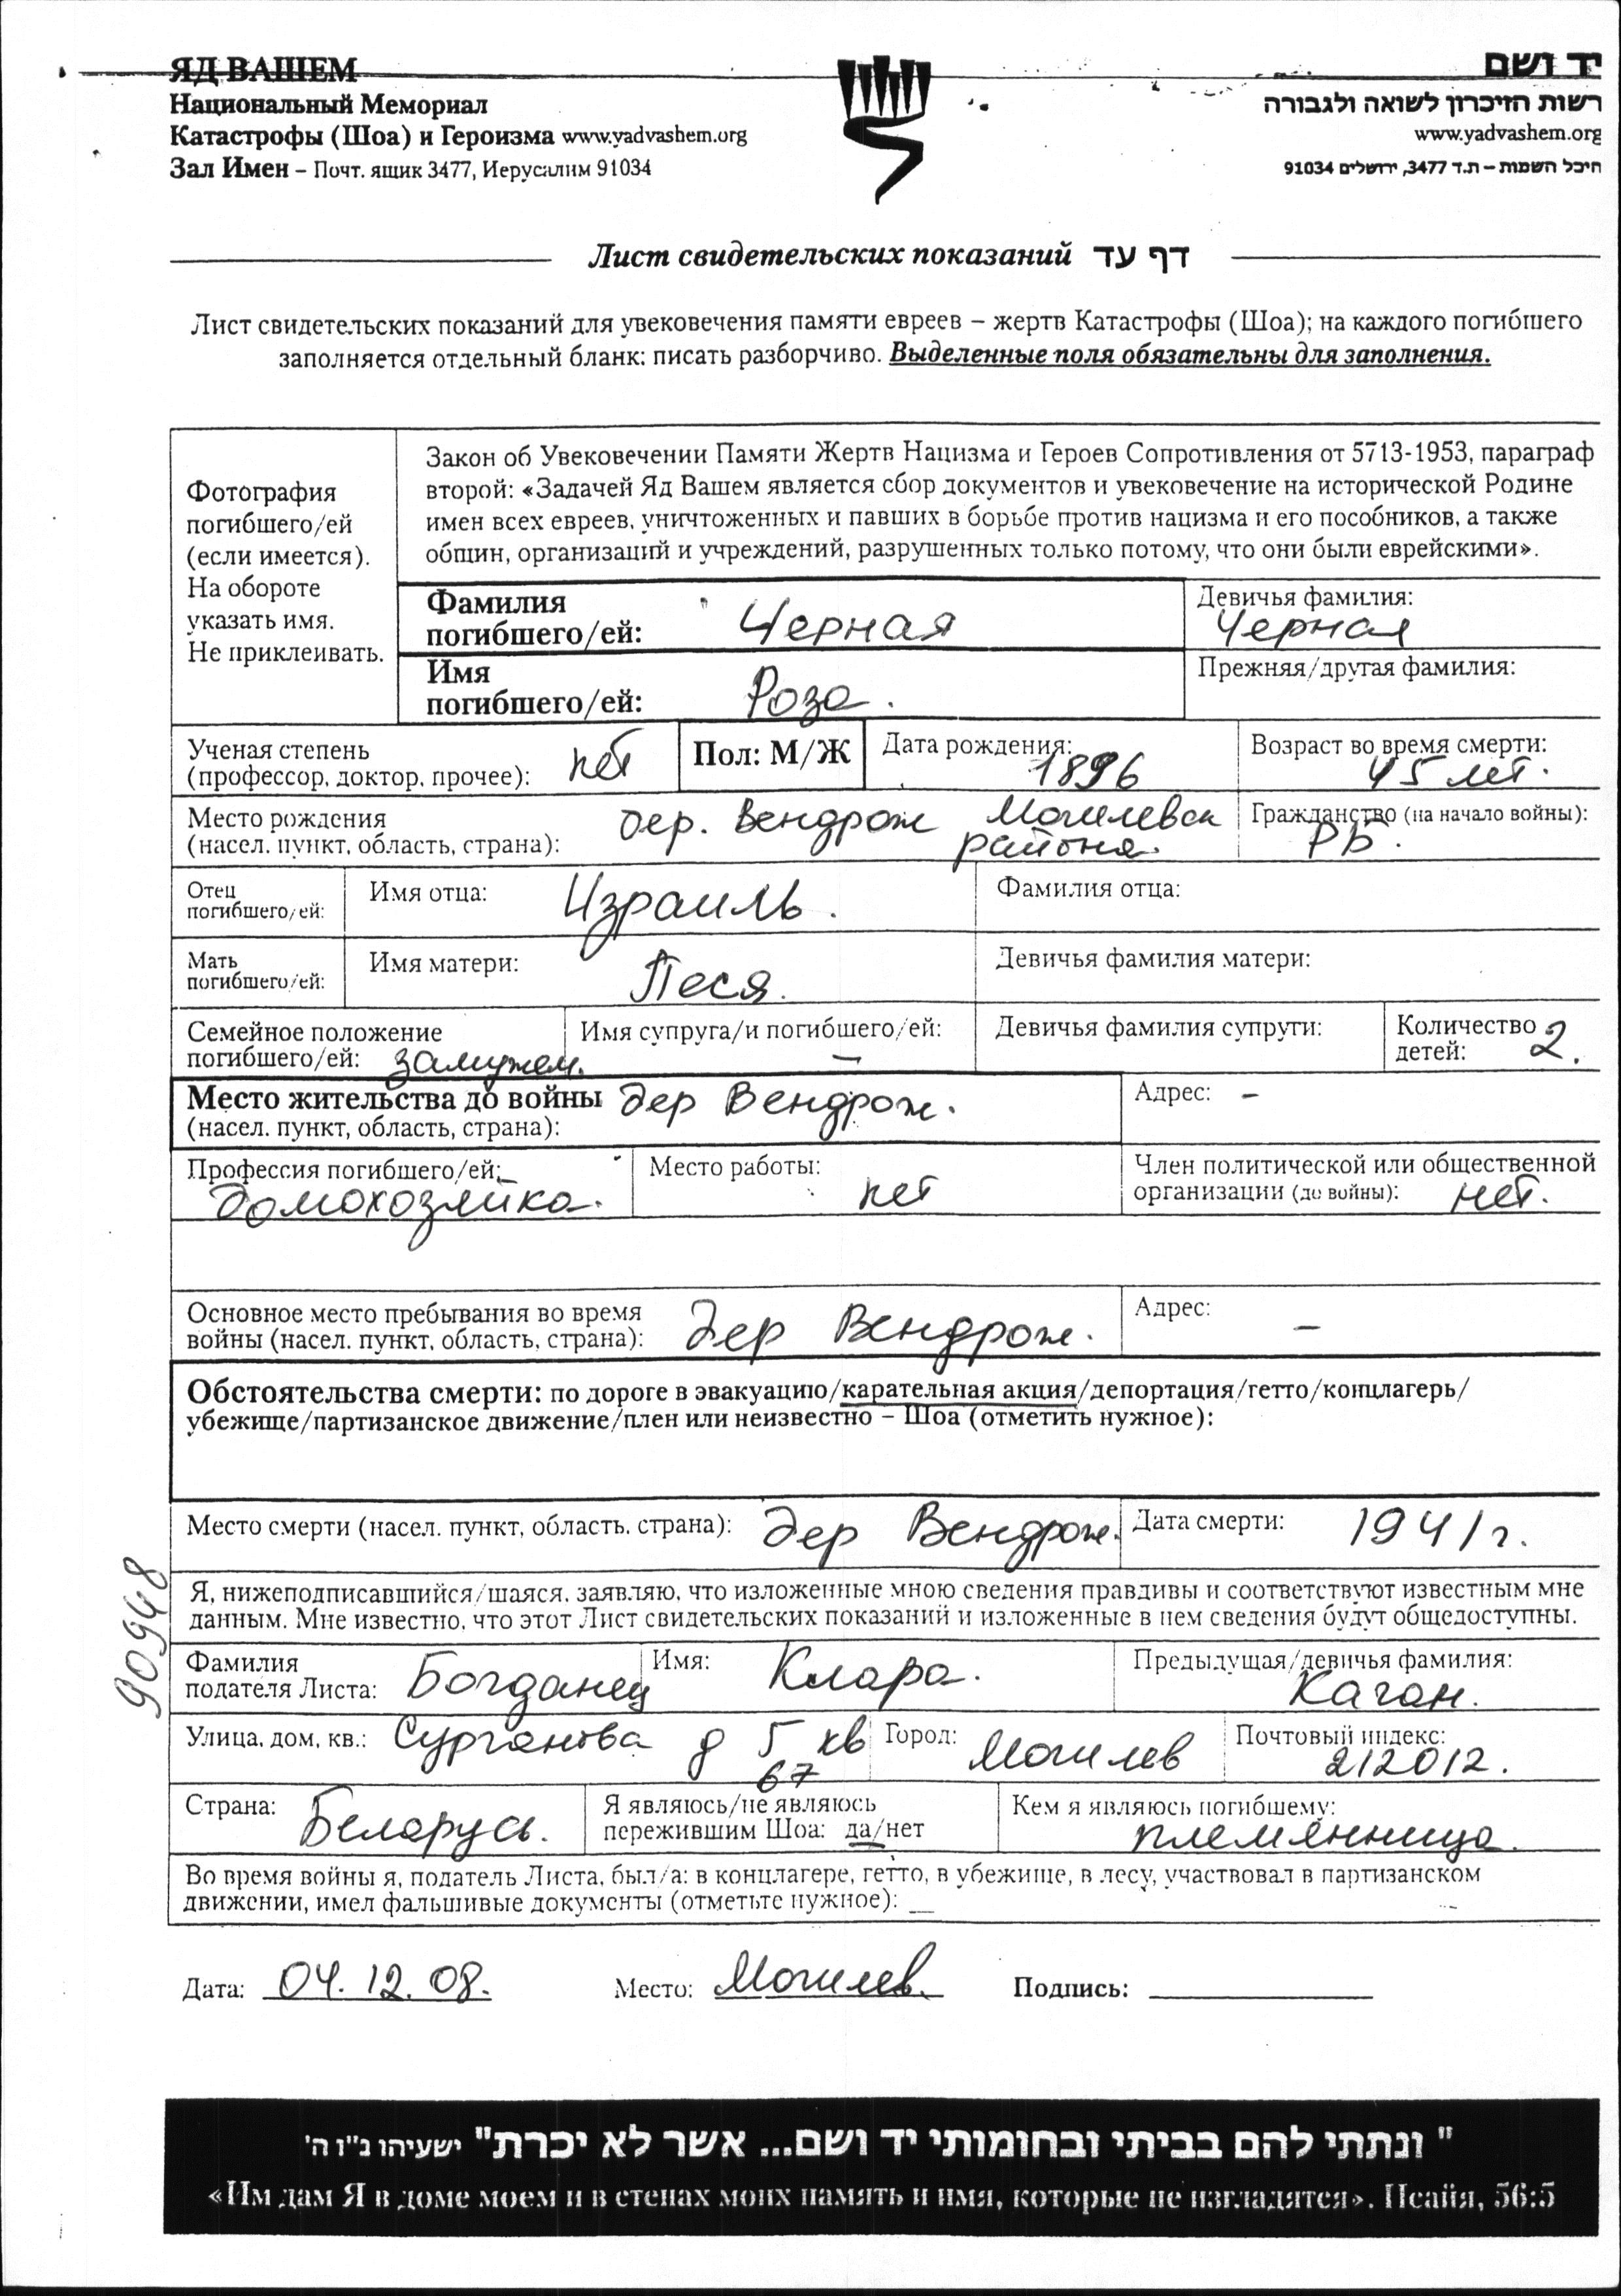 ЯД ВАШЕМ
Национальный Мемориал
Катастрофы (Шоа) и Героизма www.yadvashem.org
Зал Имен – Почт. ящик 3477, Иерусалим 91034
יד ושם
רשות הזיכרון לשואה ולגבורה
www.yadvashem.org
היכל השמות – ת.ד 3477, ירושלים 91034
Лист свидетельских показаний דף עד
Лист свидетельских показаний для увековечения памяти евреев – жертв Катастрофы (Шоа); на каждого погибшего
заполняется отдельный бланк: писать разборчиво. Выделенные поля обязательны для заполнения.
Фотография
погибшего/ей
(если имеется).
На обороте
указать имя.
Не приклеивать.
Закон об Увековечении Памяти Жертв Нацизма и Героев Сопротивления от 5713-1953, параграф
второй: «Задачей Яд Вашем является сбор документов и увековечение на исторической Родине
имен всех евреев, уничтоженных и павших в борьбе против нацизма и его пособников, а также
общин, организаций и учреждений, разрушенных только потому, что они были еврейскими».
Фамилия
погибшего/ей: Черная
Девичья фамилия:
Черная
Имя
погибшего/ей: Роза.
Прежняя/другая фамилия:
Ученая степень
(профессор, доктор, прочее): нет
Пол: М/Ж
Дата рождения:
1896
Возраст во время смерти:
45 лет.
Место рождения
(насел. пункт, область, страна): дер. Вендрож Могилевск
района.
Гражданство (на начало войны):
РБ.
Отец
погибшего/ей:
Имя отца: Израиль.
Фамилия отца:
Мать
погибшего/ей:
Имя матери: Песя.
Девичья фамилия матери:
Семейное положение
погибшего/ей: замужем.
Имя супруга/и погибшего/ей:
–
Девичья фамилия супруги:
Количество
детей: 2.
Место жительства до войны дер Вендрож.
(насел. пункт, область, страна):
Адрес: –
Профессия погибшего/ей:
Домохозяйка.
Место работы:
нет
Член политической или общественной
организации (до войны): нет.
Основное место пребывания во время
войны (насел. пункт, область, страна): дер Вендрож.
Адрес:
–
Обстоятельства смерти: по дороге в эвакуацию/карательная акция/депортация/гетто/концлагерь/
убежище/партизанское движение/плен или неизвестно – Шоа (отметить нужное):
Место смерти (насел. пункт, область, страна): дер Вендрож.
Дата смерти: 1941 г.
90948
Я, нижеподписавшийся/шаяся, заявляю, что изложенные мною сведения правдивы и соответствуют известным мне
данным. Мне известно, что этот Лист свидетельских показаний и изложенные в нем сведения будут общедоступны.
Фамилия
подателя Листа: Богданец
Имя: Клара.
Предыдущая/девичья фамилия:
Каган.
Улица, дом, кв.: Сурганова д 5 кв
67
Город: Могилев
Почтовый индекс:
212012.
Страна: Беларусь.
Я являюсь/не являюсь
пережившим Шоа: да/нет
Кем я являюсь погибшему:
племянница.
Во время войны я, податель Листа, был/а: в концлагере, гетто, в убежище, в лесу, участвовал в партизанском
движении, имел фальшивые документы (отметьте нужное):
Дата: 04.12.08. Место: Могилев. Подпись:
" ונתתי להם בביתי ובחומותי יד ושם... אשר לא יכרת" ישעיהו נ"ו ה'
«Им дам Я в доме моем и в стенах моих память и имя, которые не изгладятся». Исайя, 56:5